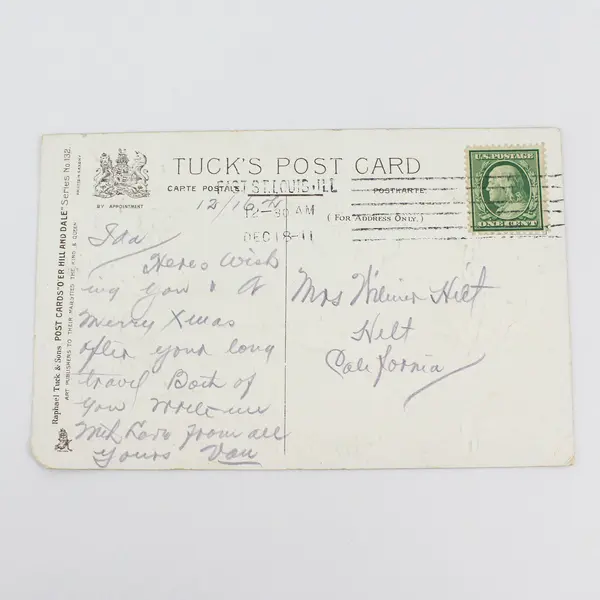 TUCK'S POST CARD
CARTE POSTALE
POSTKARTE
(FOR ADDRESS ONLY.)
BY APPOINTMENT
Raphael Tuck & Sons POST CARDS "O'ER HILL AND DALE" Series No 132.
ART PUBLISHERS TO THEIR MAJESTIES THE KING & QUEEN
EAST ST. LOUIS. ILL
12-30 AM
DEC 18-11
U.S. POSTAGE
ONE CENT
12/16th
Ida
Heres Wish
ing you & A
Merry Xmas
after your long
travel Both of
you Write me
with Love from all
yours Van
Mrs Wilmer Hilt
Hilt
California